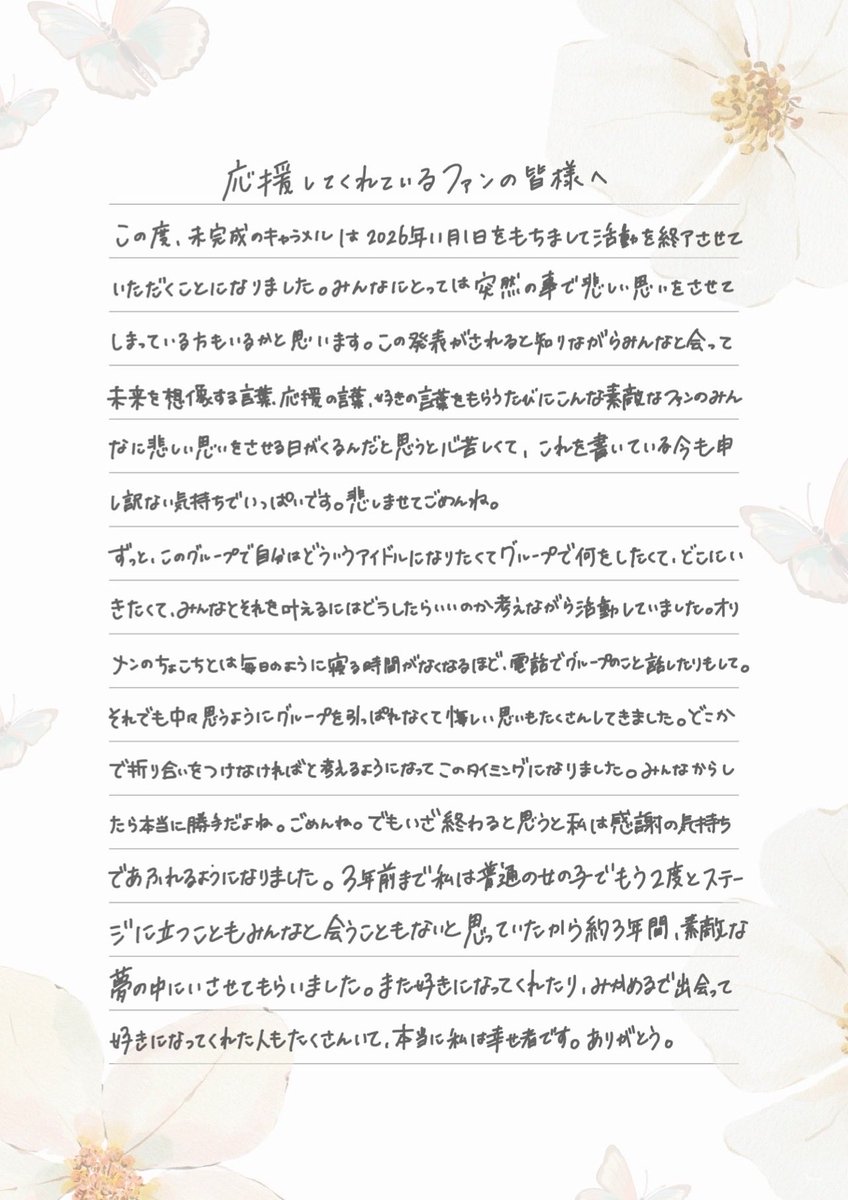 応援してくれているファンの皆様へ
この度、未完成のキャラメルは2026年11月1日をもちまして活動を終了させて
いただくことになりました。みんなにとっては突然の事で悲しい思いをさせて
しまっている方もいるかと思います。この発表がされると知りながらみんなと会って
未来を想像する言葉、応援の言葉、好きの言葉をもらうたびにこんな素敵なファンのみん
なに悲しい思いをさせる日がくるんだと思うと心苦しくて、これを書いている今も申
し訳ない気持ちでいっぱいです。悲しませてごめんね。
ずっと、このグループで自分はどういうアイドルになりたくてグループで何をしたくて、どこにい
きたくて、みんなとそれを叶えるにはどうしたらいいのか考えながら活動していました。オリ
メンのちょこちとは毎日のように寝る時間がなくなるほど、電話でグループのこと話したりもして。
それでも中々思うようにグループを引っぱれなくて悔しい思いもたくさんしてきました。どこか
で折り合いをつけなければと考えるようになってこのタイミングになりました。みんなからし
たら本当に勝手だよね。ごめんね。でもいざ終わると思うと私は感謝の気持ち
であふれるようになりました。3年前まで私は普通の女の子でもう2度とステー
ジに立つこともみんなと会うこともないと思っていたから約3年間、素敵な
夢の中にいさせてもらいました。また好きになってくれたり、みかめるで出会って
好きになってくれた人もたくさんいて、本当に私は幸せ者です。ありがとう。